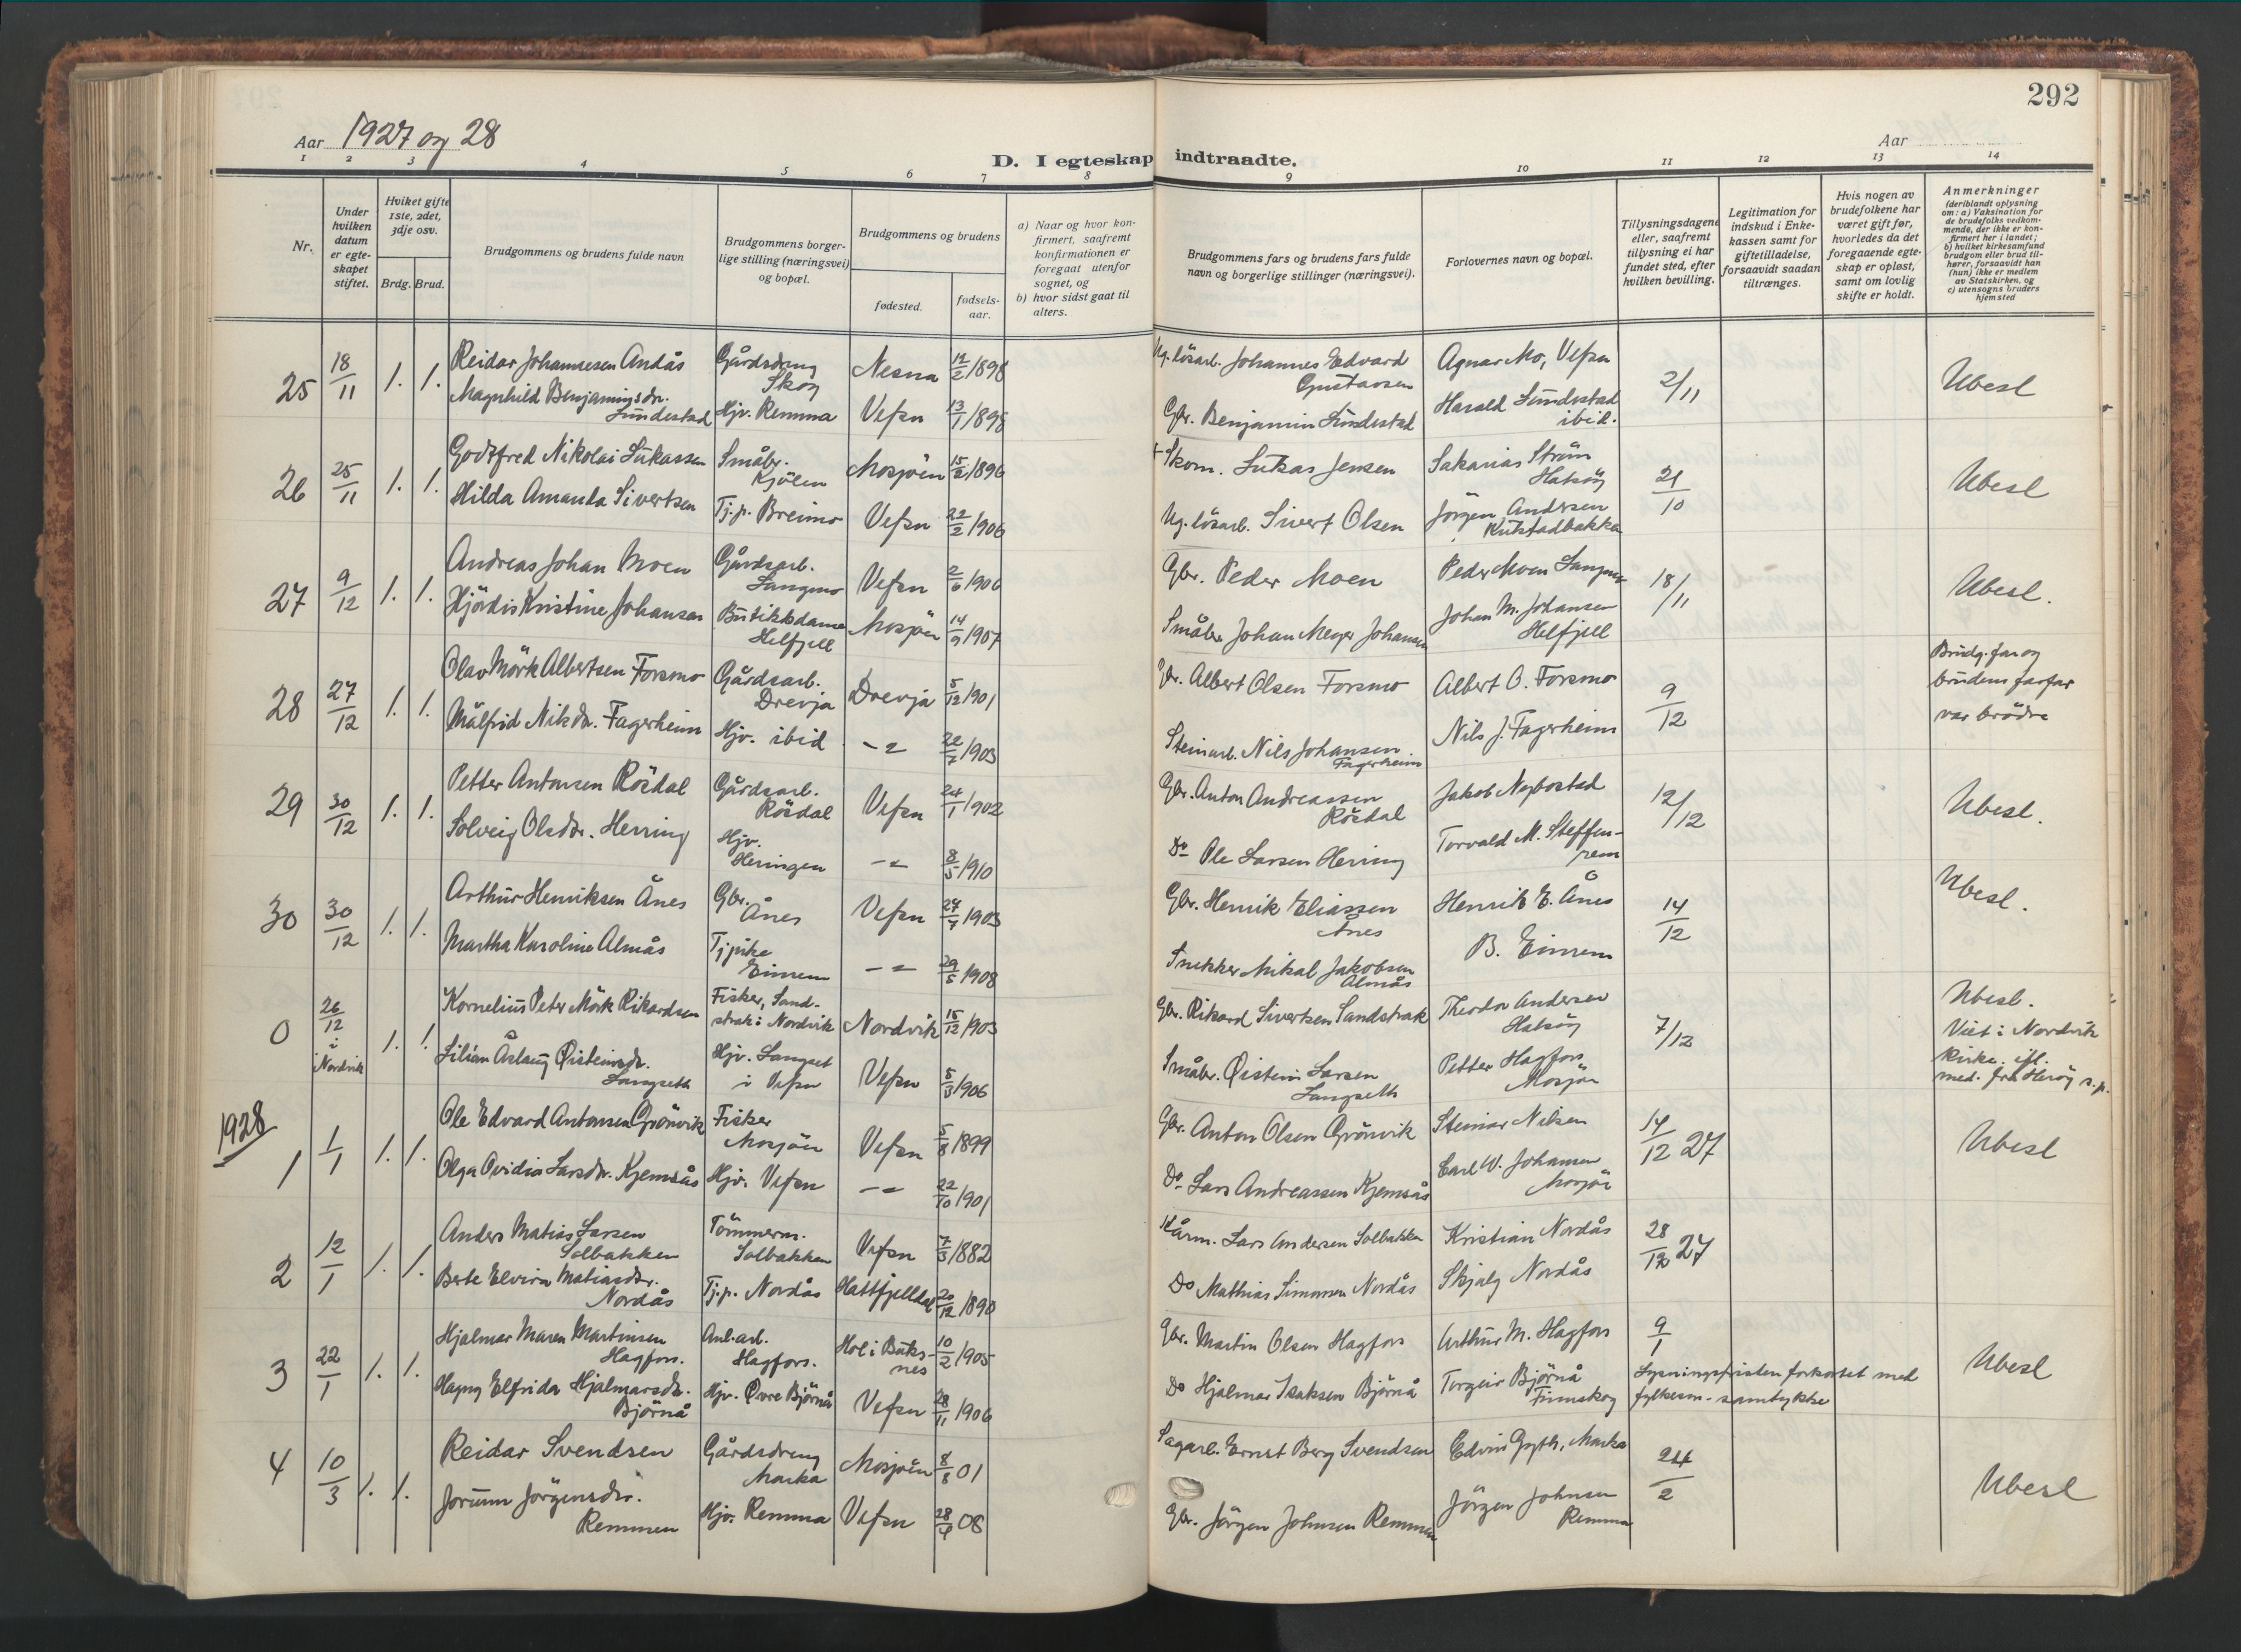 292
Aar 1927 og 28
Aar
D. I egteskap indtraadte.
1 2 3 4 5 6 7 8 9 10 11 12 13 14
Nr.
Under hvilken datum er egteskapet stiftet.
Hviket gifte 1ste, 2det, 3dje osv.
Brdg. Brud.
Brudgommens og brudens fulde navn
Brudgommens borgerlige stilling (næringsvei) og bopæl.
Brudgommens og brudens
fødested.
fødselsaar.
a) Naar og hvor konfirmert, saafremt konfirmationen er foregaat utenfor sognet, og
b) hvor sidst gaat til alters.
Brudgommens fars og brudens fars fulde navn og borgerlige stillinger (næringsvei).
Forlovernes navn og bopæl.
Tillysningsdagene eller, saafremt tillysning ei har fundet sted, efter hvilken bevilling.
Legitimation for indskud i Enkekassen samt for giftetilladelse, forsaavidt saadan tiltrænges.
Hvis nogen av brudefolkene har været gift før, hvorledes da det foregaaende egteskap er opløst, samt om lovlig skifte er holdt.
Anmerkninger (deriblandt oplysning om: a) Vaksination for de brudefolks vedkommende, der ikke er konfirmert her i landet; b) hvilket kirkesamfund brudgom eller brud tilhører, forsaavidt han (hun) ikke er medlem av Statskirken, og c) utensogns bruders hjemsted
25 18/11 1. 1. Reidar Johannesen Andås Gårdsdreng Skog Nesna 12/2 1898 Ug. lösarb. Johannes Edvard Gustavsen Agnar Mo, Vefsn 2/11 Ubesl
Magnhild Benjaminsdr. Lundestad Hjv. Remma Vefsn 13/1 1898 Gbr. Benjamin Lundestad Harald Lundestad ibid.
26 25/11 1. 1. Godtfred Nikolai Lukassen Småbr. Kjölen Mosjöen 15/2 1896 + Skom. Lukas Jensen Sakarias Ström Halsöy 21/10 Ubesl
Hilda Amanda Sivertsen Tj.p. Breimo Vefsn 22/2 1906 Ug. lösarb. Sivert Olsen Jörgen Andersen Kulstadbakka
27 9/12 1. 1. Andreas Johan Moen Gårdsarb. Langmo Vefsn 2/6 1906 Gbr. Peder Moen Peder Moen Langmo 18/11 Ubesl.
Hjördis Kristine Johansen Butikkdame Helfjell Mosjöen 14/9 1907 Småbr. Johan Meyer Johansen Johan M. Johansen Helfjell
28 27/12 1. 1. Olav Mörk Albertsen Forsmo Gårdsarb. Drevja Drevja 5/12 1901 Gbr. Albert Olsen Forsmo Albert O. Forsmo 9/12 Brudg. far og brudens farfar var brödre
Målfrid Nilsdr. Fagerheim Hjv. ibid -"- 22/7 1903 Steinarb. Nils Johansen Fagerheim Nils J. Fagerheim
29 30/12 1. 1. Petter Antonsen Rösdal Gårdsarb. Rösdal Vefsn 24/1 1902 Gbr. Anton Andreassen Rösdal Jakob Nybostad 12/12 Ubesl.
Solveig Olsdr. Herring Hjv. Heringen -"- 8/5 1910 Do Ole Larsen Herring Torvald M. Steffensen
30 30/12 1. 1. Arthur Henriksen Ånes Gbr. Ånes Vefsn 27/7 1903 Gbr. Henrik Eliassen Ånes Henrik E. Ånes 14/12 Ubesl.
Martha Karoline Almås Tj.pike Einrem -"- 29/5 1908 Snekker Mikal Jakobsen Almås B. Einrem
0 26/12 i Nordvik 1. 1. Kornelius Peter Mörk Rikardsen Fisker, Sandstrak i Nordvik Nordvik 15/12 1903 Gbr. Rikard Sivertsen Sandstrak Theodor Andersen Halsöy 7/12 Ubesl. Viet i Nordvik kirke. ifl. med. fra Heröy s.p.
Lilian Åslaug Øisteinsdr. Langseth Hjv. Langset i Vefsn Vefsn 5/3 1906 Småbr. Øistein Larsen Langseth Petter Hagfors Mosjön
1928
1 1/1 1. 1. Ole Edvard Antonsen Grönvik Fisker Mosjöen Vefsn 5/8 1899 Gbr. Anton Olsen Grönvik Steinar Nilsen 14/12 27 Ubesl
Olga Ovidia Larsdr. Kjemsås Hjv. Vefsn -"- 22/10 1901 Do Lars Andreassen Kjemsås Carl W. Johansen Mosjön
2 12/1 1. 1. Anders Matias Larsen Solbakken Tömmerm. Solbakken Vefsn 7/3 1882 Kårm. Lars Andersen Solbakken Kristian Nordås 28/12 27
Berte Elvira Matiasdr. Nordås Tj.p. Nordås Hattfjelldal 20/12 1890 Do Mathias Simonsen Nordås Skjalg Nordås
3 22/1 1. 1. Hjalmar Maren Martinsen Hagfors. Anl.arb. Hagfors. Hol i Buksnes 10/2 1905 Gbr. Martin Olsen Hagfors Arthur M. Hagfors 9/1 Ubesl
Hagny Elfrida Hjalmarsdr. Björnå Hjv. Övre Björnå Vefsn 28/11 1906 Do Hjalmar Isaksen Björnå Torgeir Björnå Finnskog Lysningsfristen forkortet med fylkesm. samtykke
4 10/3 1. 1. Reidar Svendsen Gårdsdreng Marka Mosjöen 8/8 01 Sagarb. Ernst Berg Svendsen Edvin Gyth, Marka 24/2 Ubesl
Jorunn Jörgensdr. Remmen Hjv. Remma Vefsn 28/4 08 Gbr. Jörgen Johnsen Remmen Jörgen Johnsen Remma